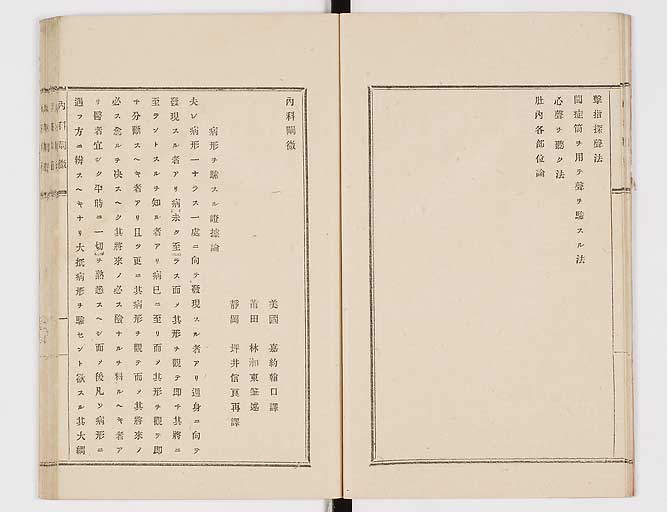 擊指探聲法
聞症筒ヲ用テ聲ヲ驗スル法
心聲ヲ聽ク法
肚內各部位論
內科闡微
美國 嘉約翰口譯
莆田 林湘東筆述
靜岡 坪井信良再譯
病形ヲ驗スル證據論
夫レ病形一ナラス一處ニ向テ發現スル者アリ遍身ニ向テ
發現スル者アリ病未タ至ラス而メ其形ヲ觀テ即チ其將ニ
至ラントスルヲ知ル者アリ病已ニ至リ而メ其形ヲ觀テ即
チ分類スヘキ者アリ且ツ更ニ其病形ヲ觀テ而メ其將來ノ
必ス愈ルヲ決スヘク其將來ノ必ス險ナルヲ料ルヘキ者ア
リ醫者宜シク平時ニ一切ヲ熟悉スヘシ而メ後凡ソ病形ニ
遇フ方ニ辨スヘキナリ大抵病形ヲ驗セント欲スル其大綱
內科闡微
一